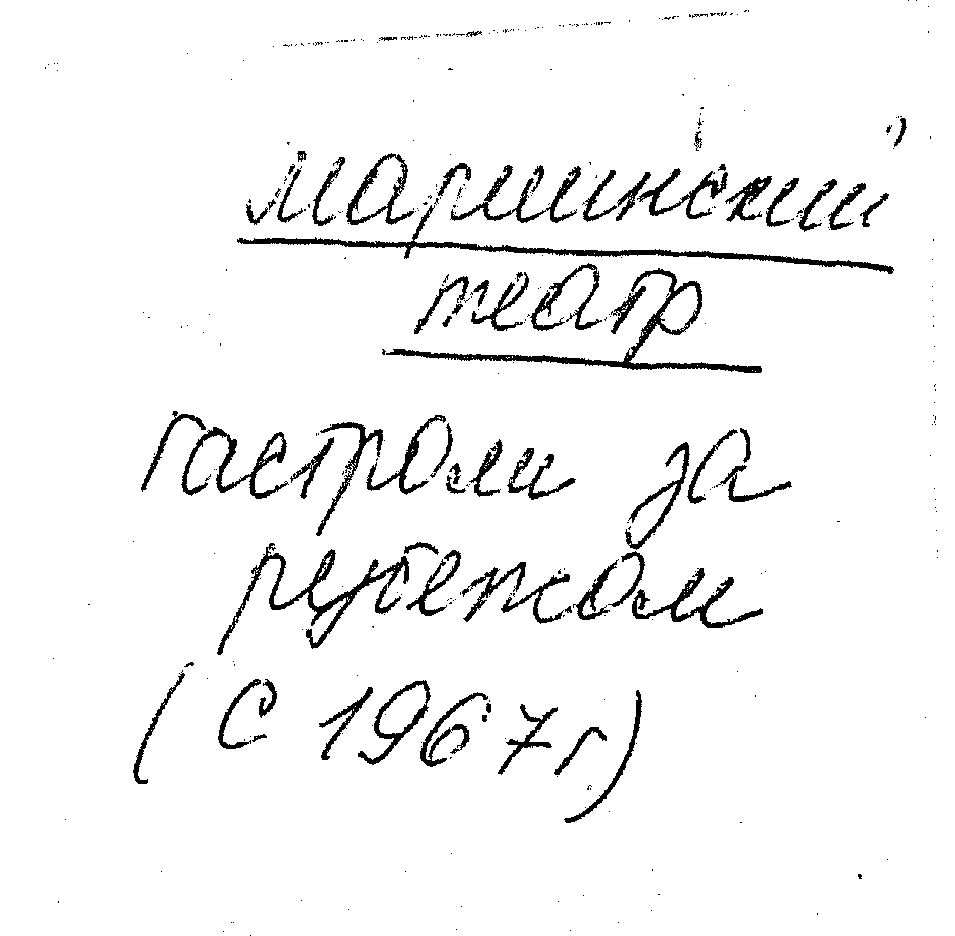 Мариинский
театр
гастроли за
рубежом
(с 1967 г.)